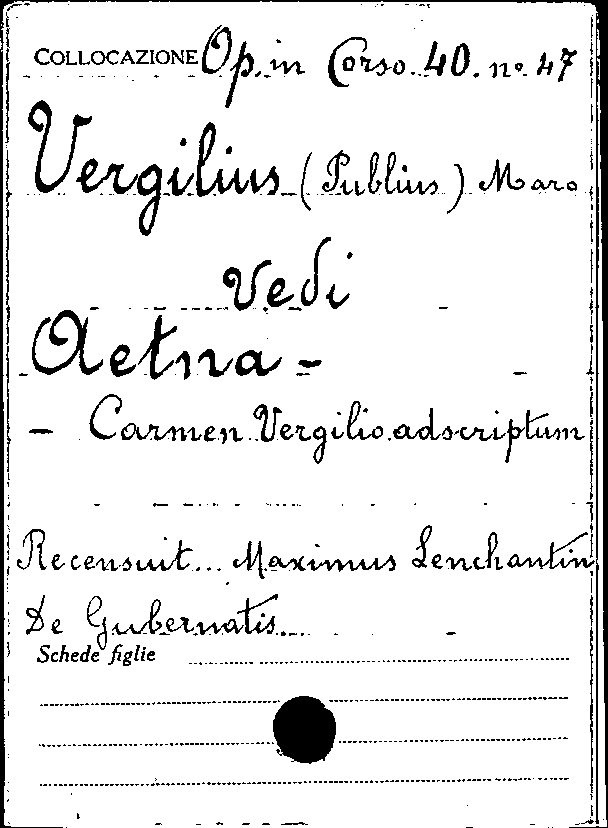 COLLOCAZIONE Op. in Corso. 40. nº 47
Vergilius (Publius) Maro
Vedi
Aetna -
- Carmen Vergilio adscriptum
Recensuit... Maximus Lenchantin
De Gubernatis...
Schede figlie